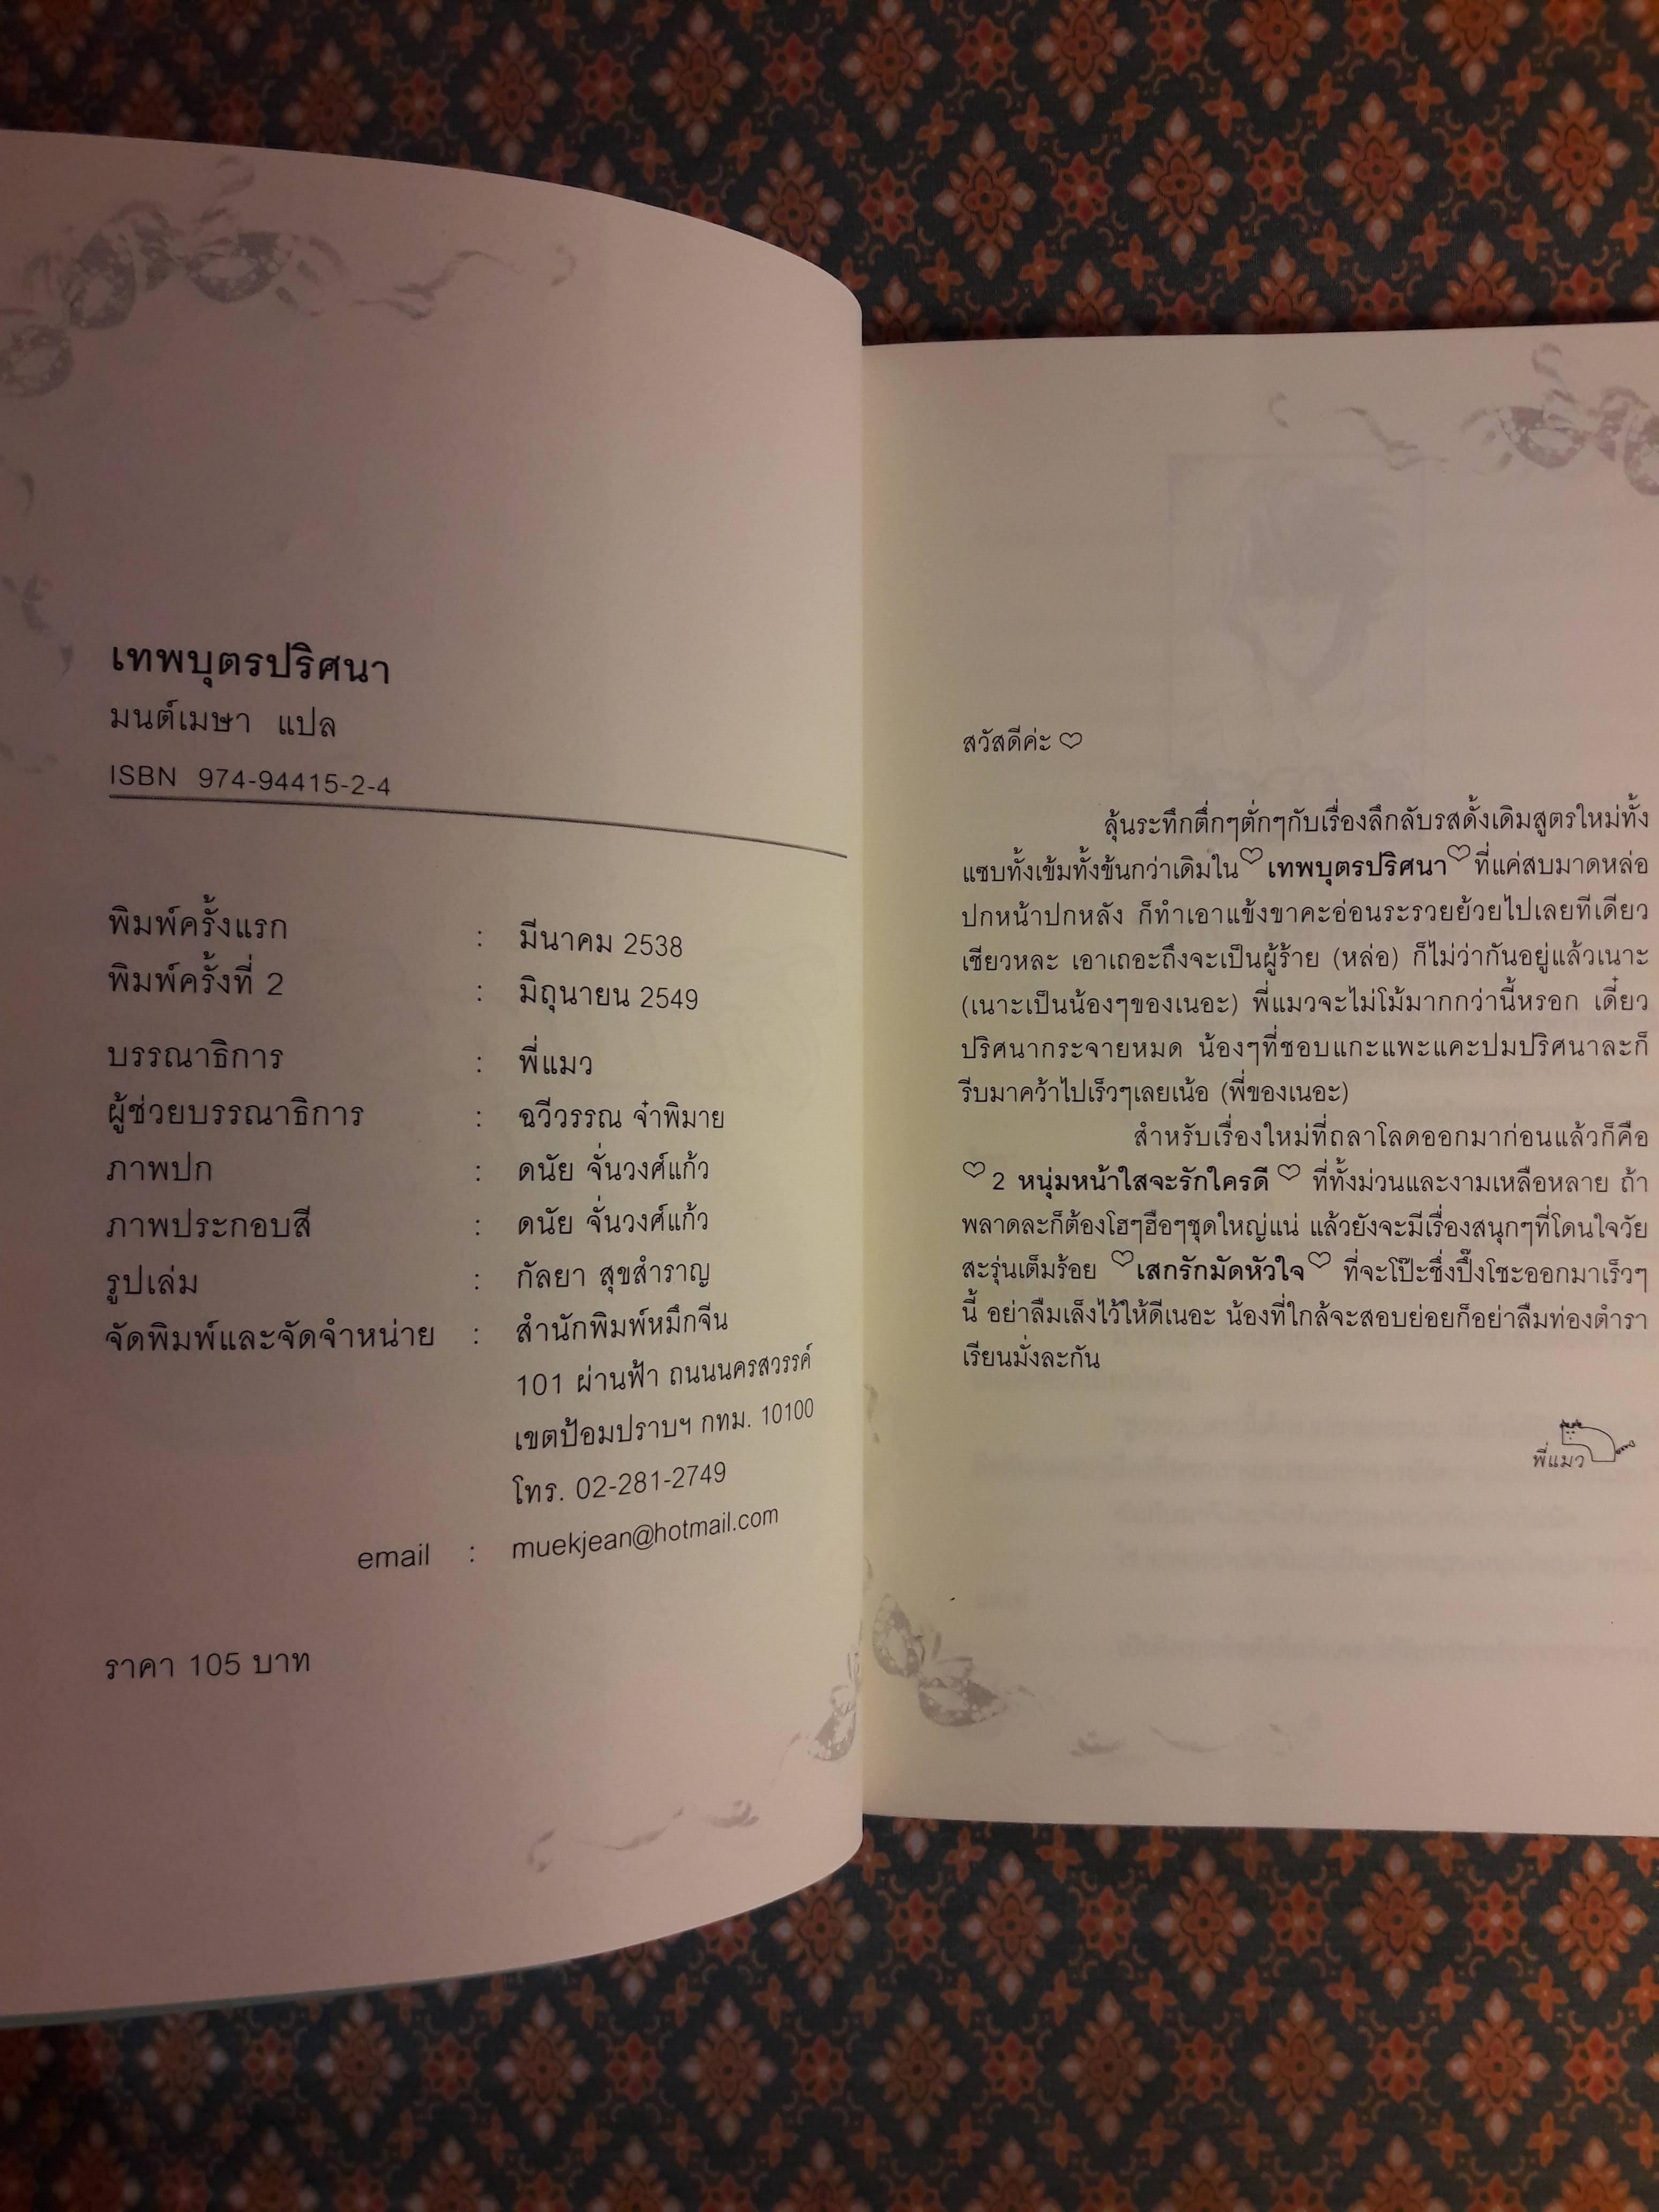 เทพบุตรปริศนา
มนต์เมษา แปล
ISBN 974-94415-2-4
พิมพ์ครั้งแรก : มีนาคม 2538
พิมพ์ครั้งที่ 2 : มิถุนายน 2549
บรรณาธิการ : พี่แมว
ผู้ช่วยบรรณาธิการ : ฉวีวรรณ จำพิมาย
ภาพปก : ดนัย จั่นวงศ์แก้ว
ภาพประกอบสี : ดนัย จั่นวงศ์แก้ว
รูปเล่ม : กัลยา สุขสำราญ
จัดพิมพ์และจัดจำหน่าย : สำนักพิมพ์หมึกจีน
101 ผ่านฟ้า ถนนนครสวรรค์
เขตป้อมปราบฯ กทม. 10100
โทร. 02-281-2749
email : muekjean@hotmail.com
ราคา 105 บาท
สวัสดีค่ะ ♡
ลุ้นระทึกตึ่กๆตั่กๆกับเรื่องลึกลับรสดั้งเดิมสูตรใหม่ทั้ง
แซบทั้งเข้มทั้งข้นกว่าเดิมใน ♡ เทพบุตรปริศนา ♡ ที่แค่สบมาดหล่อ
ปกหน้าปกหลัง ก็ทำเอาแข้งขาคะอ่อนระรวยย้วยไปเลยทีเดียว
เชียวหละ เอาเถอะถึงจะเป็นผู้ร้าย (หล่อ) ก็ไม่ว่ากันอยู่แล้วเนาะ
(เนาะเป็นน้องๆของเนอะ) พี่แมวจะไม่โม้มากกว่านี้หรอก เดี๋ยว
ปริศนากระจายหมด น้องๆที่ชอบแกะแพะแคะปมปริศนาละก็
รีบมาคว้าไปเร็วๆเลยเน้อ (พี่ของเนอะ)
สำหรับเรื่องใหม่ที่ถลาโลดออกมาก่อนแล้วก็คือ
♡ 2 หนุ่มหน้าใสจะรักใครดี ♡ ที่ทั้งม่วนและงามเหลือหลาย ถ้า
พลาดละก็ต้องโฮๆฮือๆชุดใหญ่แน่ แล้วยังจะมีเรื่องสนุกๆที่โดนใจวัย
สะรุ่นเต็มร้อย ♡ เสกรักมัดหัวใจ ♡ ที่จะโป๊ะชึ่งปึ๊งโชะออกมาเร็วๆ
นี้ อย่าลืมเล็งไว้ให้ดีเนอะ น้องที่ใกล้จะสอบย่อยก็อย่าลืมท่องตำรา
เรียนมั่งละกัน
พี่แมว